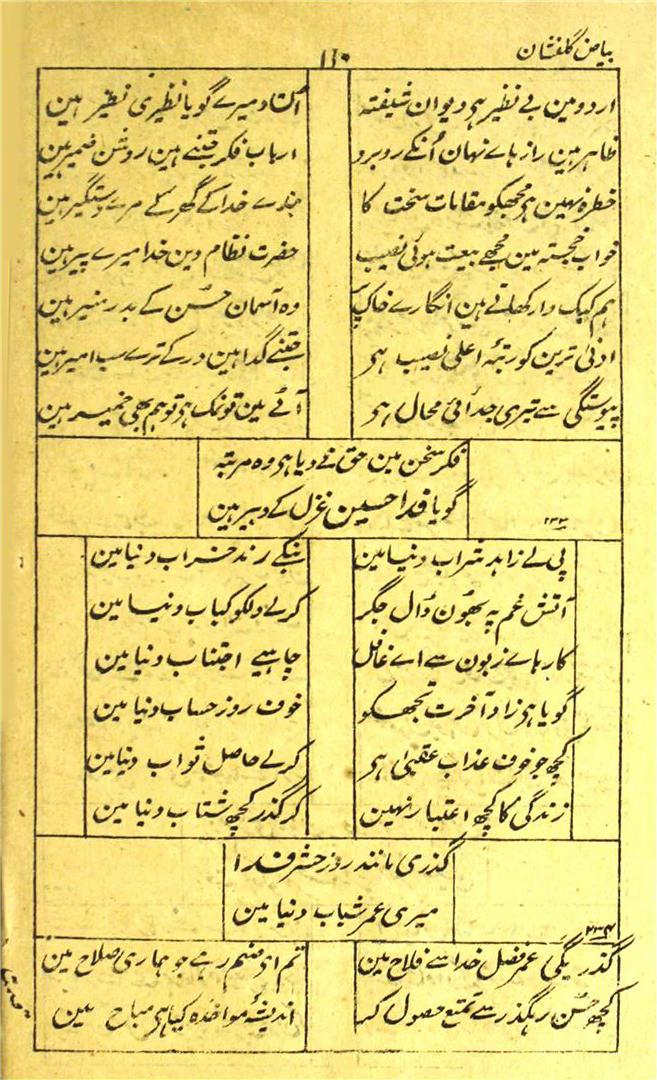 بیاض گلفشان
۱۱۰
اردو مین بے نظیر ہی دیوان شیفتہ
استاد میرے گویا نظیری نظیر ہین
ظاہر ہین راز ہاے نہان اُنکے روبرو
ارباب فکر جتنے ہین روشن ضمیر ہین
خطرہ نہین ہی مجھکو مقامات سخت کا
بندے خدا کے گھر کے مرے دستگیر ہین
خواب خجستہ مین مجھے بیعت ہوئی نصیب
حضرت نظام دین خدا میرے پیر ہین
ہم کبک وار کھاتے ہین انگارے خاک پر
وہ آسمان حسُن کے بدر منیر ہین
ادنیٰ ترین کو رتبۂ اعلیٰ نصیب ہی
جتنے گدا ہین در کے ترے سب امیر ہین
پیوستگی سے تیری جدائی محال ہی
آٹے مین تو نمک ہی تو ہم بھی خمیر ہین
فکر سخن مین حق نے دیا ہی وہ مرتبہ
گویا فدا حسین غزل کے دبیر ہین
۲۳۳
پی لے زاہد شراب دنیا مین
بنکے رند خراب دنیا مین
آتش غم پہ بھون ڈال جگر
کرلے دلکو کباب دنیا مین
کارہاے زبون سے اے غافل
چاہیے اجتناب دنیا مین
گویا ہی زاد آخرت تجھکو
خوف روز حساب دنیا مین
کچھ جو خوف عذاب عقبیٰ ہی
کرلے حاصل ثواب دنیا مین
زندگی کا کچھ اعتبار نہین
کر گذر کچھ شتاب دنیا مین
گذری مانند روز حشر فدا
میری عمر شباب دنیا مین
۲۳۴
گذریگی عمر فضل خدا سے فلاح مین
تم ای صنم رہے جو ہماری صلاح مین
کچھ حسُن رہگذر سے تمتع حصول کر
اندیشۂ مواخذہ کیا ہی مباح مین